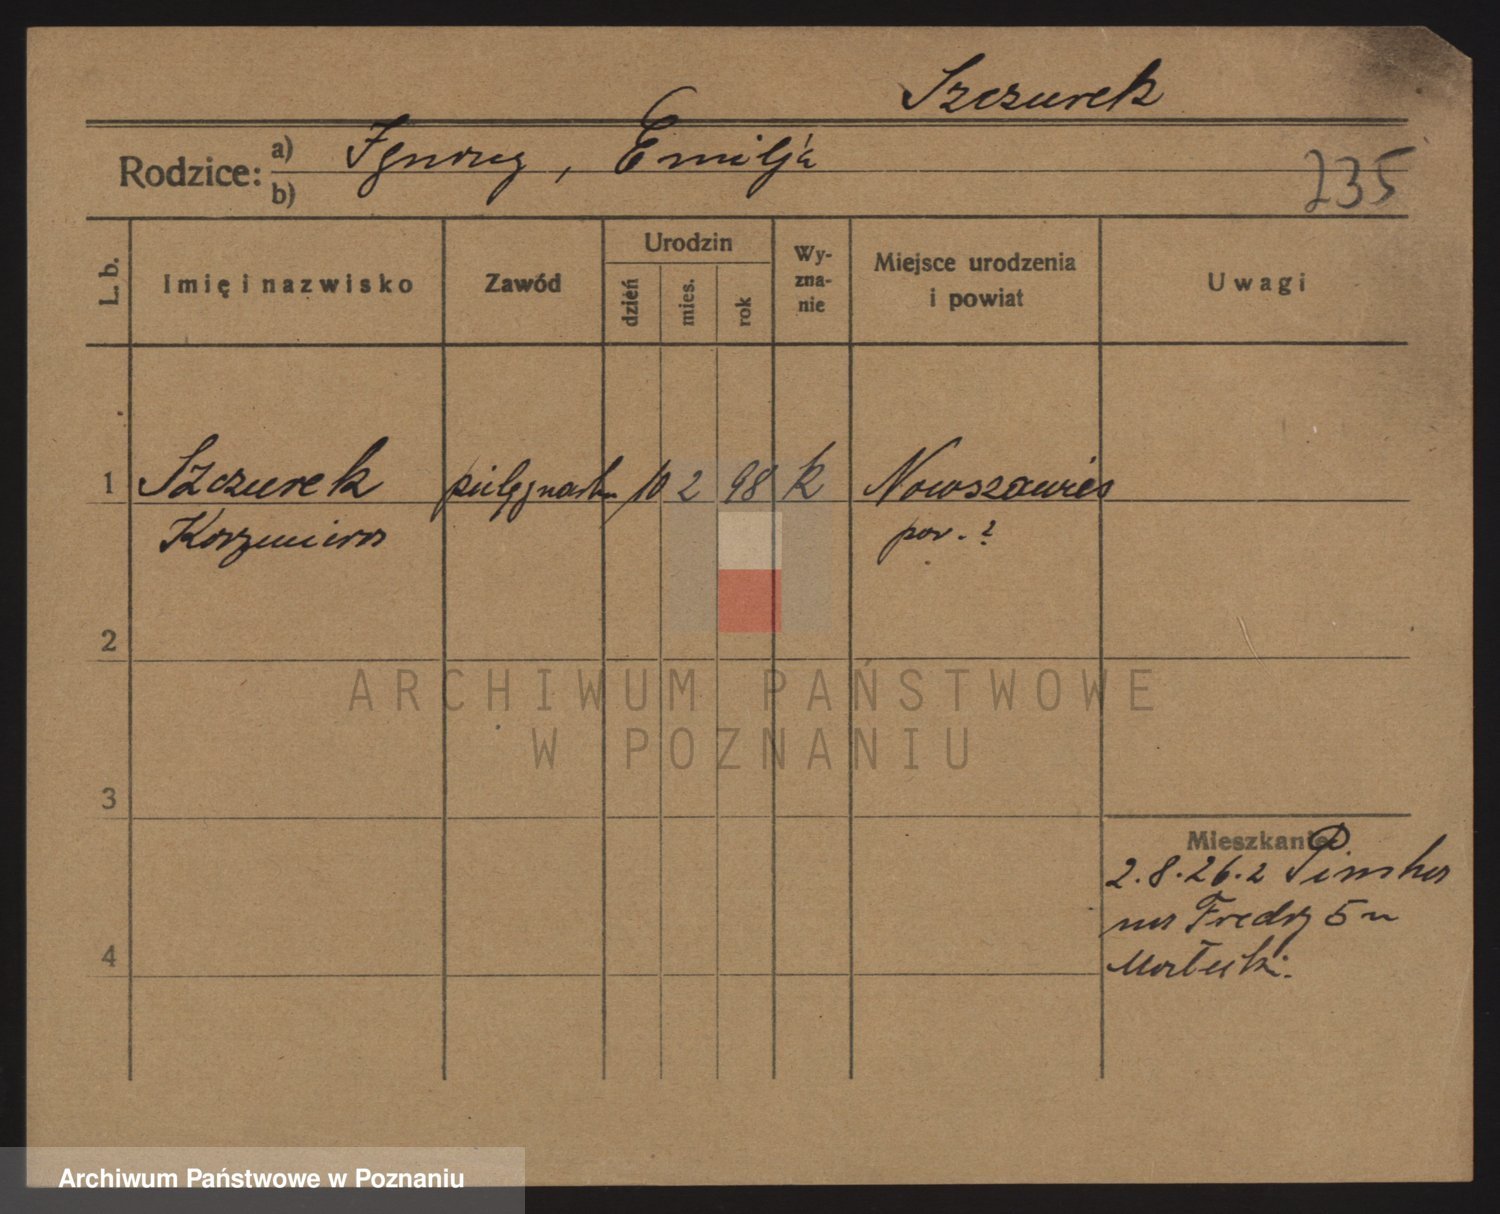 Szczurek
Rodzice: a) Ignacy, Emilja
b)
235
L. b.
Imię i nazwisko
Zawód
Urodzin
dzień
mies.
rok
Wy-
zna-
nie
Miejsce urodzenia
i powiat
Uwagi
1 Szczurek 10 2 98 k Nowszawies
pow. ?
2
ARCHIWUM PAŃSTWOWE
W POZNANIU
3
Mieszkanie
2.8.26. z Pińska
na Fredry 5 u
4
Archiwum Państwowe w Poznaniu